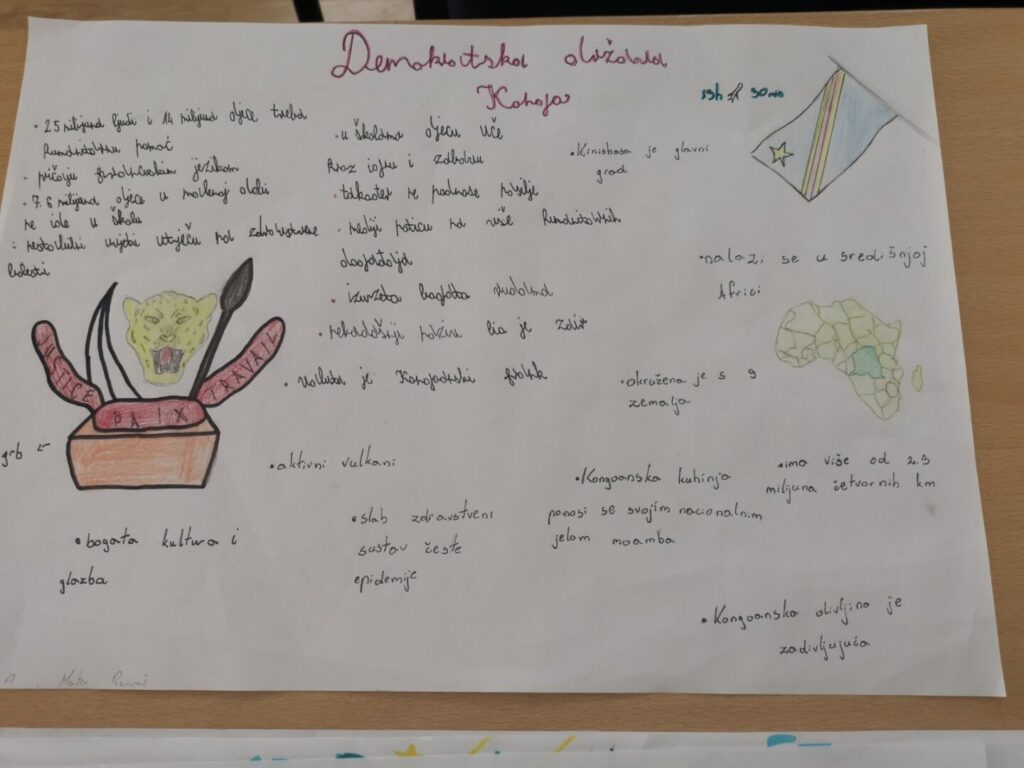 Demokratska država
Konga
19h ✈ 30min
• 25 milijuna ljudi i 14 milijuna djece treba
humanitarnu pomoć
- pričaju francuskim jezikom
• 7.6 milijuna djece u
ne ide u školu
uvjeti utječu na zdravstvene
bolesti
• u školama djecu uče
kroz igru i zabavu
• također ne podnose nasilje
- mediji potiču na više humanitarnih
događaja
• izuzetno bogata rudama
•
• valuta je Kongoanski frank
• Kinšasa je glavni
grad
• nalazi se u središnjoj
Africi
• okružena je s 9
zemalja
JUSTICE
PAIX
TRAVAIL
grb ←
• aktivni vulkani
• Kongoanska kuhinja
ponosi se svojim nacionalnim
jelom moamba
• ima više od 2.3
milijuna četvornih km
• bogata kultura i
glazba
• slab zdravstveni
sustav česte
epidemije
• Kongoanska divljina je
zadivljujuća